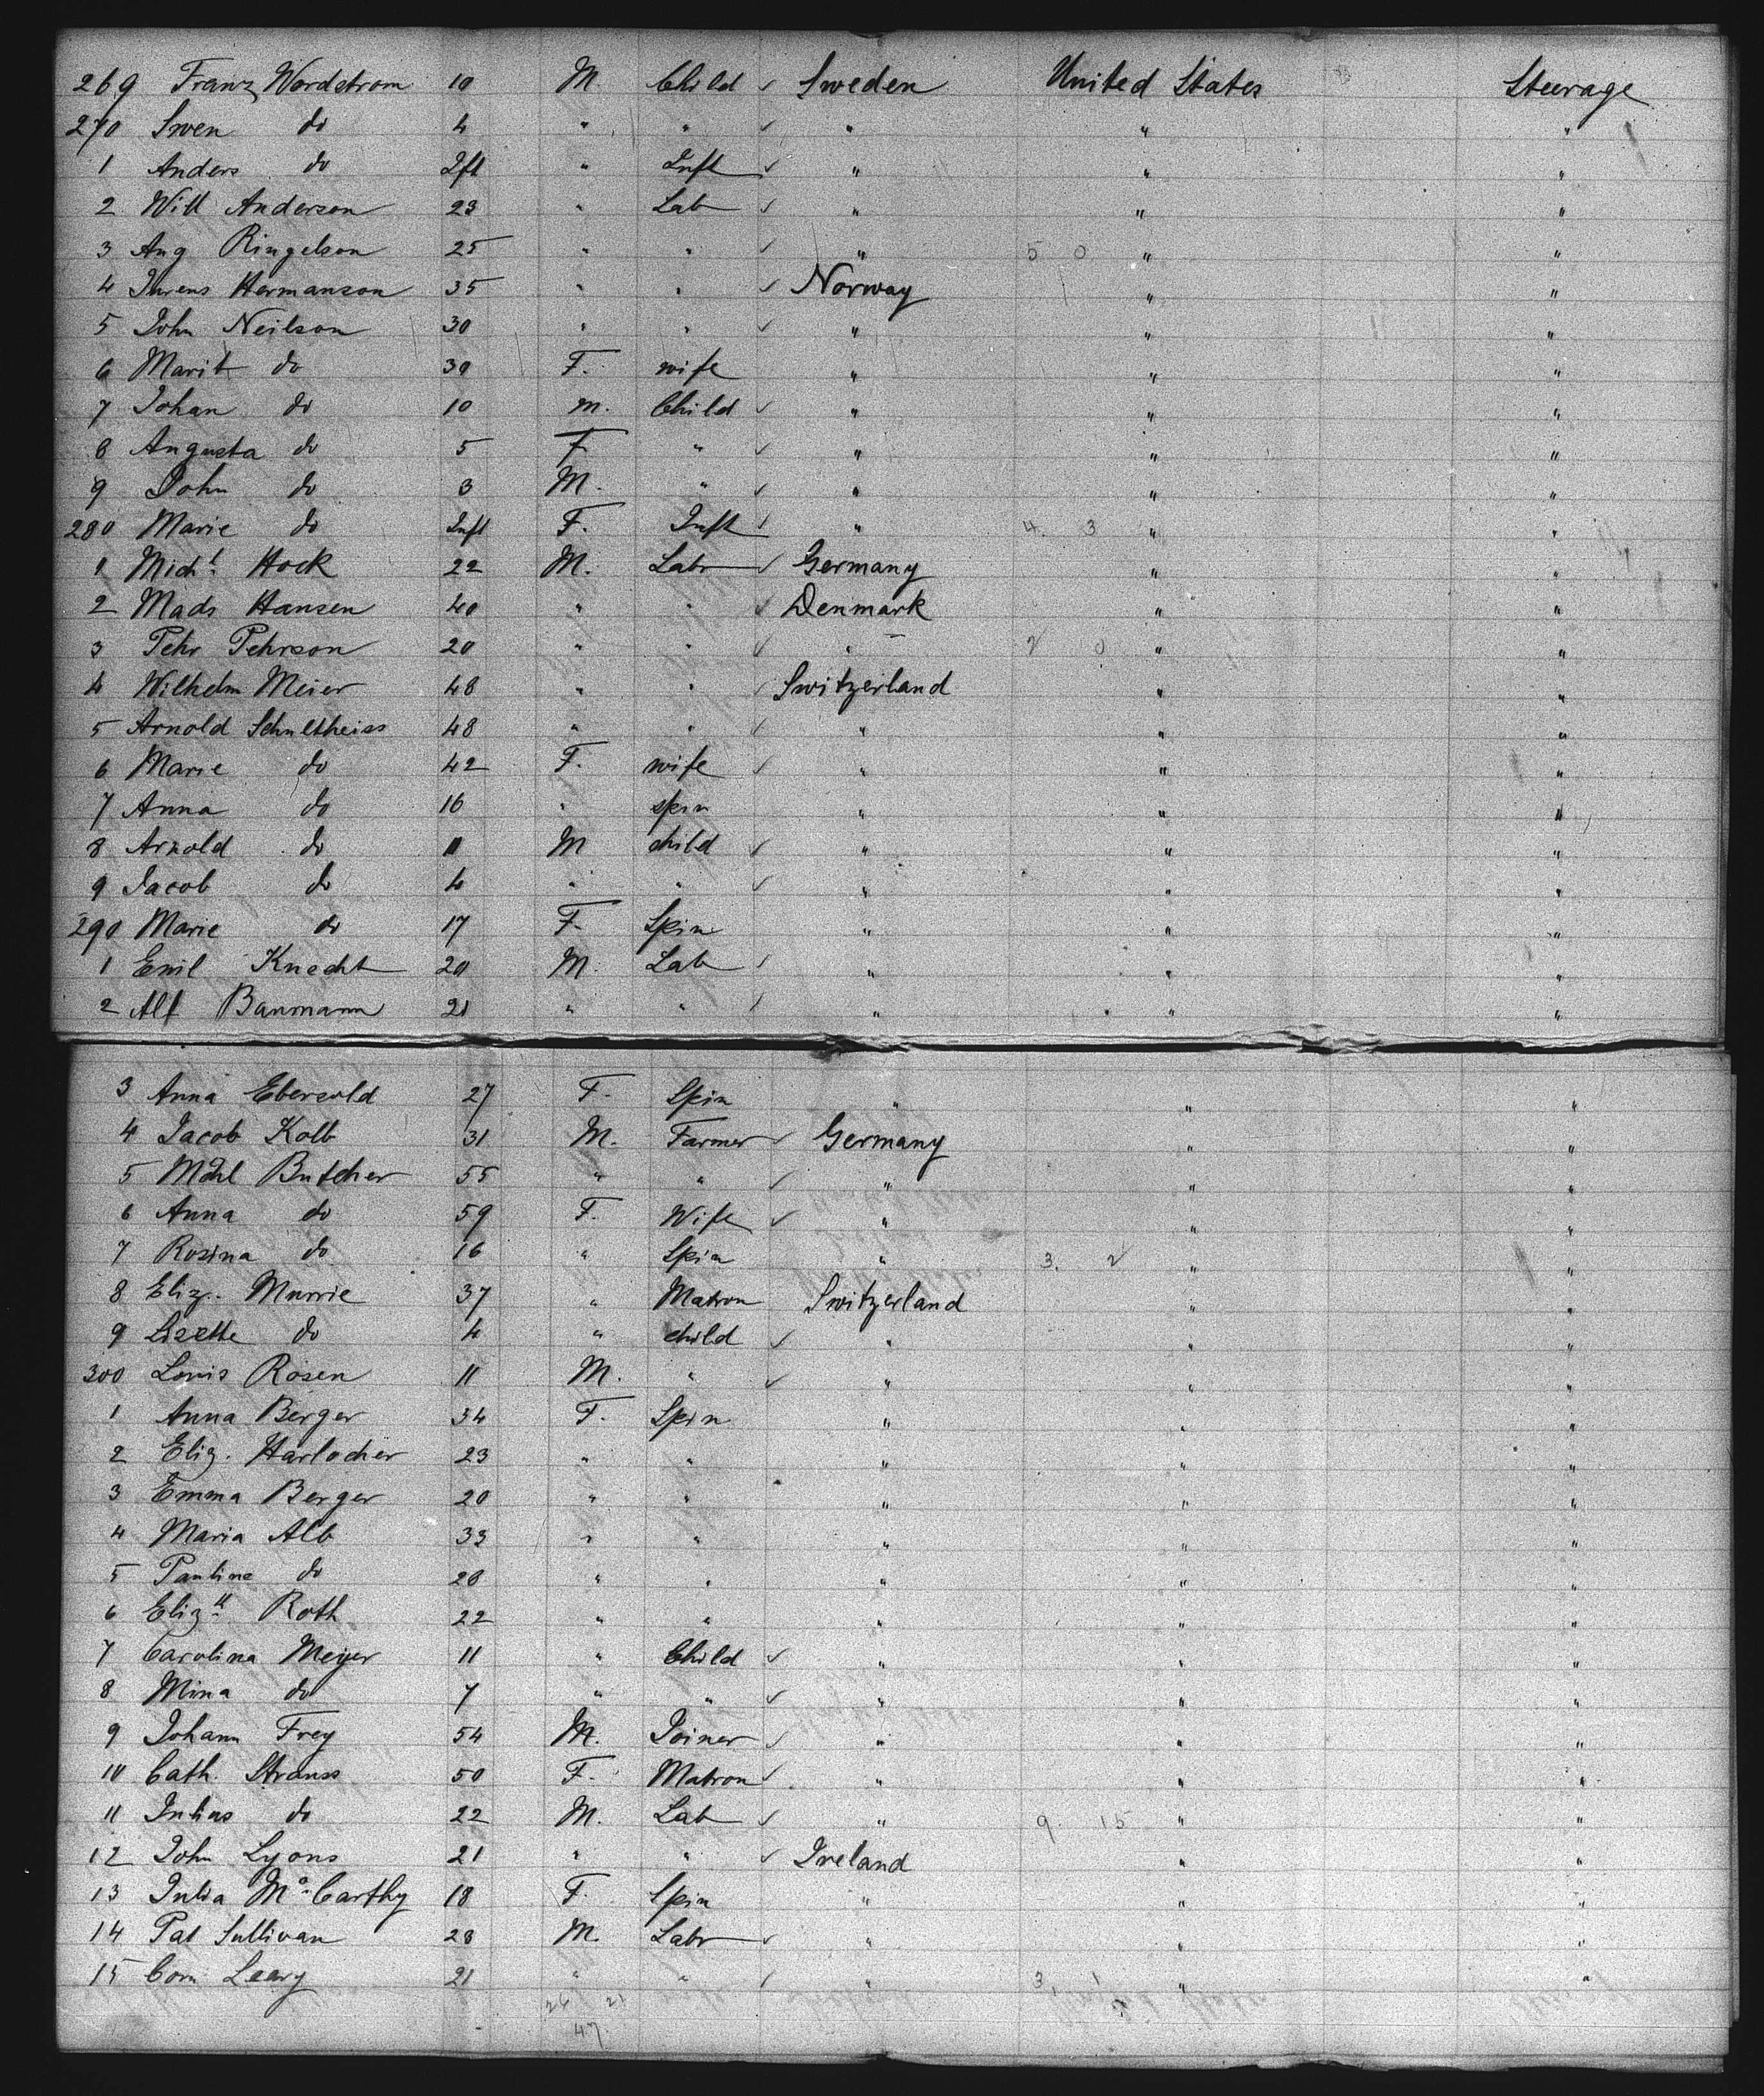 269 Franz Nordstrom 10 M. Child ✓ Sweden United States Steerage
270 Swen do 4 " " ✓ " " "
1 Anders do Ift " Inft ✓ " " "
2 Will Anderson 23 " Lab ✓ " " "
3 Aug Ringelson 25 " " ✓ " 5 0 " "
4 Hermanson 35 " " ✓ Norway " "
5 John Neilson 30 " " ✓ " " "
6 Marit do 30 F. wife " " "
7 Johan do 10 M. Child ✓ " " "
8 Augusta do 5 F " ✓ " " "
9 John do 3 M. " ✓ " " "
280 Marie do Inft F. Inft ✓ " 4. 3 " "
1 Michl Hock 22 M. Labr ✓ Germany " "
2 Mads Hansen 40 " " ✓ Denmark " "
3 Pehr Pehrson 20 " " ✓ " 2 0 " "
4 Wilhelm Meier 48 " " ✓ Switzerland " "
5 Arnold Schultheiss 48 " " ✓ " " "
6 Marie do 42 F. wife ✓ " " "
7 Anna do 16 " spin " " "
8 Arnold do 11 M child ✓ " " "
9 Jacob do 4 " " ✓ " " "
290 Marie do 17 F. Spin " " "
1 Emil Knecht 20 M. Lab ✓ " " "
2 Alf Baumann 21 " " ✓ " " "
3 Anna Ebersold 27 F. Spin " " "
4 Jacob Kolb 31 M. Farmer ✓ Germany " "
5 Mchl Butcher 55 " " ✓ " " "
6 Anna do 59 F. Wife ✓ " " "
7 Rosina do 16 " Spin " 3. 2 " "
8 Eliz. Murrie 37 " Matron Switzerland " "
9 Lisette do 4 " child ✓ " " "
300 Louis Rosen 11 M. " ✓ " " "
1 Anna Berger 34 F. Spin " " "
2 Eliz. Harlocher 23 " " " " "
3 Emma Berger 20 " " " " "
4 Maria Alb 33 " " " " "
5 Pauline do 28 " " " " "
6 Elizth Roth 22 " " " " "
7 Carolina Meyer 11 " Child ✓ " " "
8 Mina do 7 " " ✓ " " "
9 Johann Frey 54 M. Joiner ✓ " " "
10 Cath. Strauss 50 F. Matron ✓ " " "
11 Julius do 22 M. Lab ✓ " 9. 15 " "
12 John Lyons 21 " " ✓ Ireland " "
13 Julia McCarthy 18 F. Spin " " "
14 Pat Sullivan 28 M. Labr ✓ " " "
15 Corn Leary 21 " " ✓ " 3. 1 " "
26 21
47